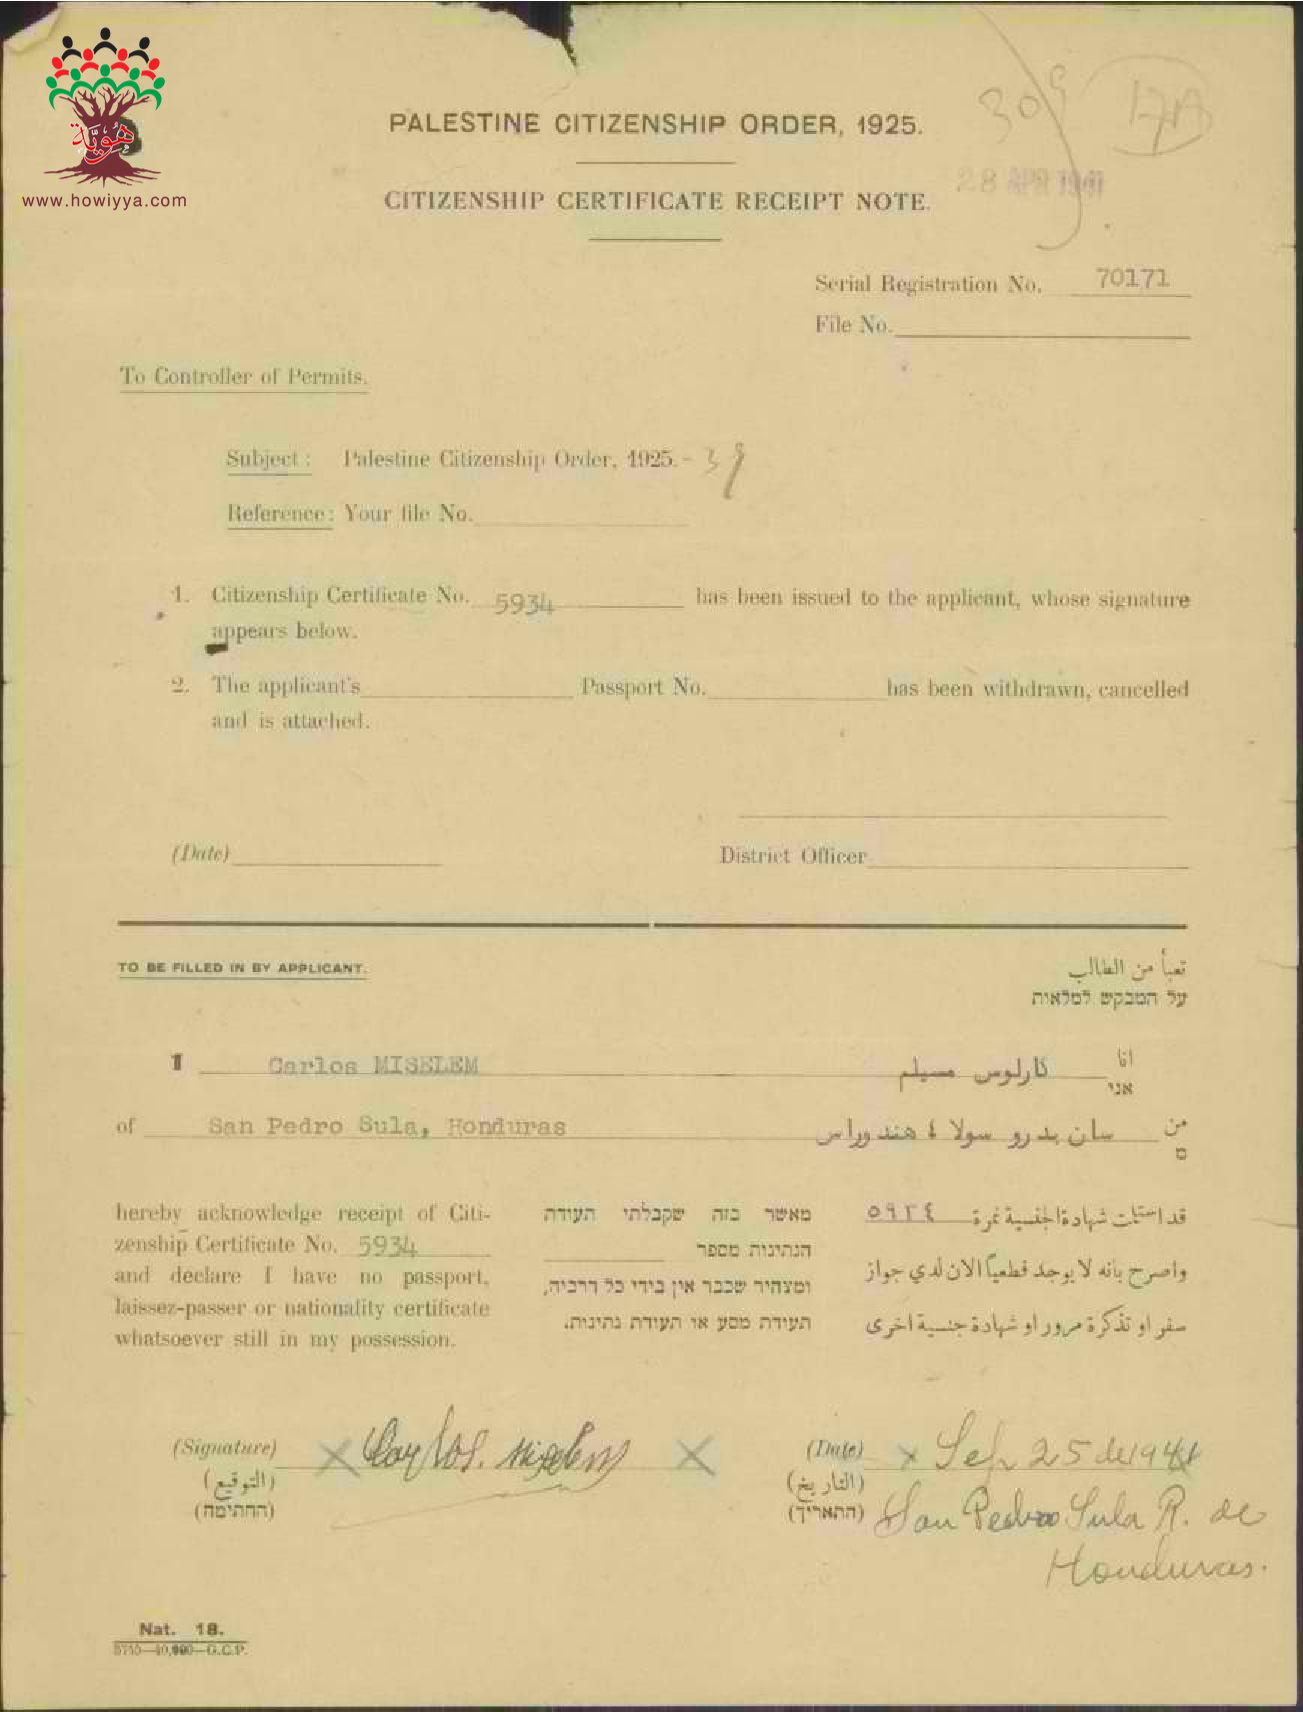 هُوِيَّة
www.howiyya.com
309
17A
PALESTINE CITIZENSHIP ORDER, 1925.
28 APR 1941
CITIZENSHIP CERTIFICATE RECEIPT NOTE.
Serial Registration No. 70171
File No.
To Controller of Permits.
Subject: Palestine Citizenship Order, 1925.-39
Reference: Your file No.
1. Citizenship Certificate No. 5934 has been issued to the applicant, whose signature
appears below.
2. The applicant's Passport No. has been withdrawn, cancelled
and is attached.
(Date) District Officer
TO BE FILLED IN BY APPLICANT.
تعبأ من الطالب
על המבקש למלאות
I Carlos MISELEM
انا كارلوس مسيلم
אני
of San Pedro Sula, Honduras
من سان بدرو سولا ، هندوراس
מ
hereby acknowledge receipt of Citi-
zenship Certificate No. 5934
and declare I have no passport,
laissez-passer or nationality certificate
whatsoever still in my possession.
מאשר בזה שקבלתי תעודת
הנתינות מספר
ומצהיר שכבר אין בידי כל דרכיה,
תעודת מסע או תעודת נתינות.
قد استلمت شهادة الجنسية نمرة ٥٩٣٤
واصرح بانه لا يوجد قطعياً الان لدي جواز
سفر او تذكرة مرور او شهادة جنسية اخرى
(Signature) X Carlos. Miselem X
(التوقيع)
(החתימה)
(Date) x Sep 25 de 1941
(التاريخ)
(התאריך)
San Pedro Sula R. de
Honduras.
Nat. 18.